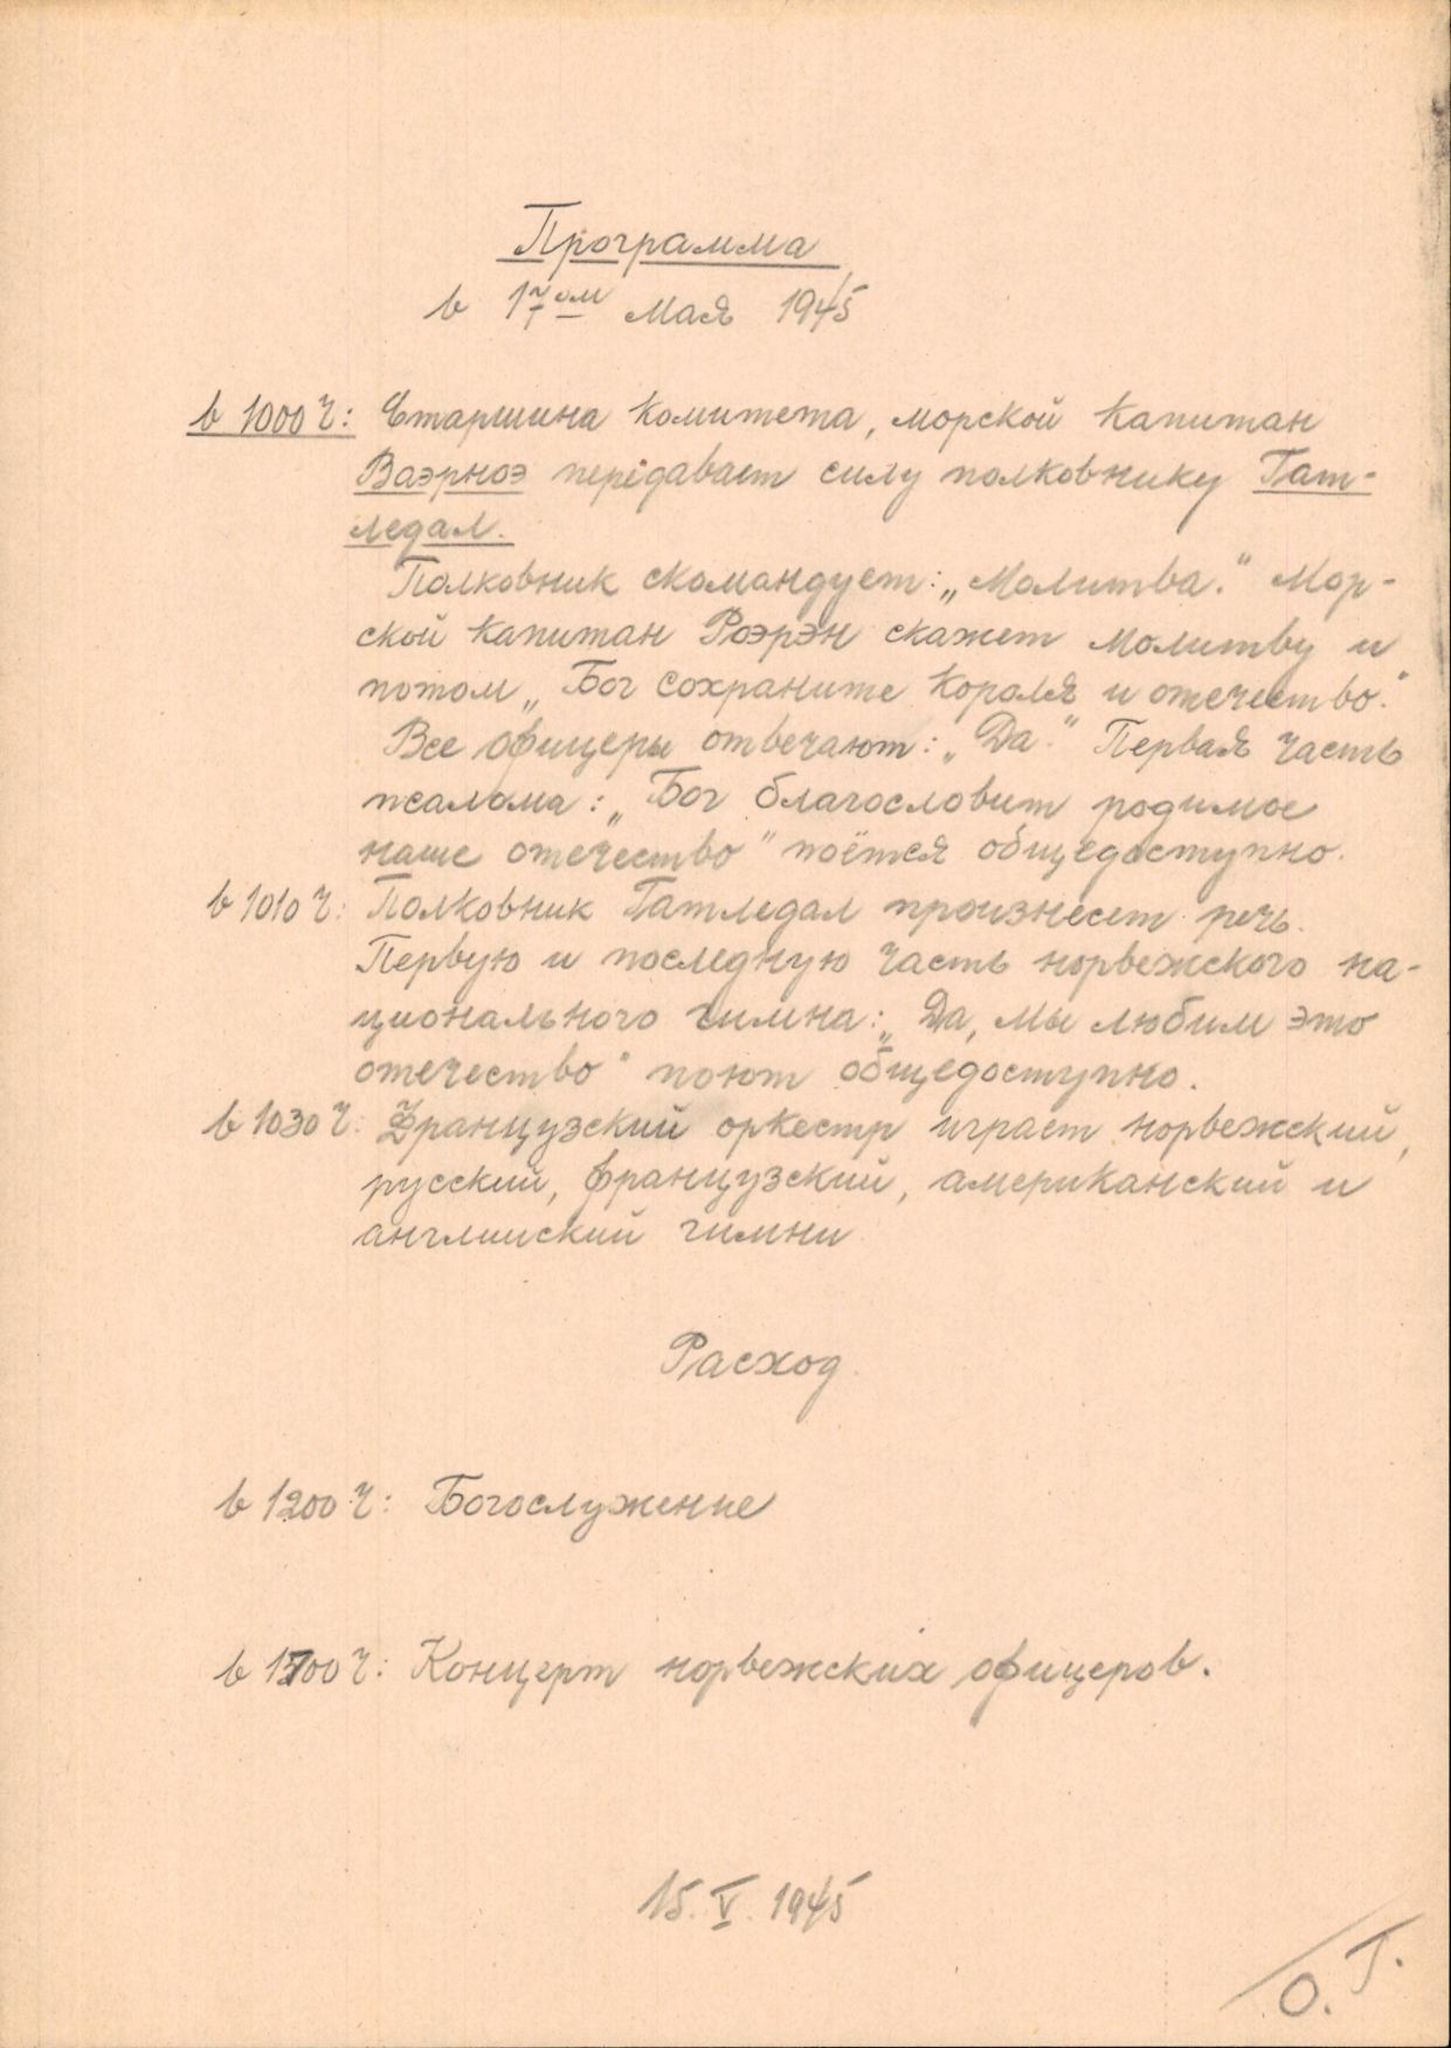 Программа
в 17ом мая 1945
в 1000 ч: Старшина комитета, морской капитан
Ваэрноэ перiдавает силу полковнику Гат-
ледал.
Полковник скомандует: „Молитва." Мор-
ской капитан Роэрэн скажет молитву и
потом „Бог сохраните короля и отечество."
Все офицеры отвечают: „Да." Первая часть
псалома: „Бог благословит родимое
наше отечество" поётся общедоступно.
в 1010 ч: Полковник Гатледал произнесет речь.
Первую и последную часть норвежского на-
ционального гимна: „Да, мы любим это
отечество" поют общедоступно.
в 1030 ч: Французский оркестр играет норвежский,
русский, французский, американский и
английский гимни
Расход
в 1200 ч: Богослужение
в 1700 ч: Концерт норвежских офицеров.
15. V. 1945
О. Т.